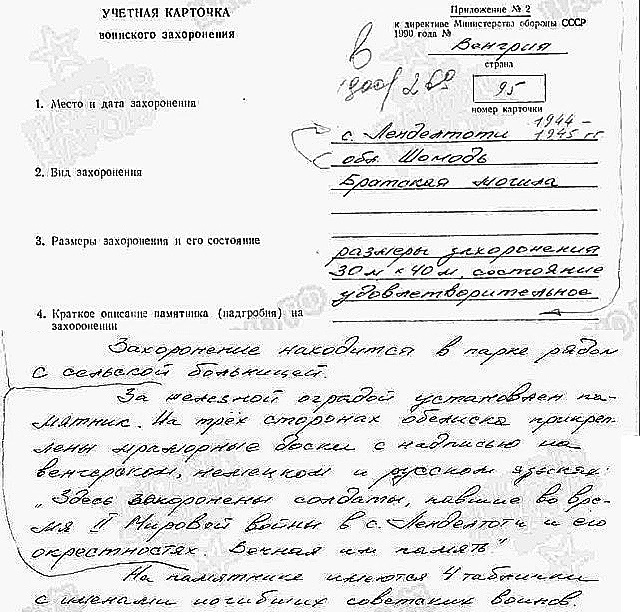 УЧЕТНАЯ КАРТОЧКА
воинского захоронения
Приложение № 2
к директиве Министерства обороны СССР
1990 года №
Венгрия
страна
95
номер карточки
1. Место и дата захоронения
1944 –
с. Ленделтоти 1945 гг
обл Шомодь
2. Вид захоронения
Братская могила
3. Размеры захоронения и его состояние
размеры захоронения
30м × 40м, состояние
удовлетворительное
4. Краткое описание памятника (надгробия) на
захоронении
Захоронение находится в парке рядом
с сельской больницей.
За железной оградой установлен па-
мятник. На трёх сторонах обелиска прикреп-
лены мраморные доски с надписью на
венгерском, немецком и русском языках:
"Здесь захоронены солдаты, павшие во вре-
мя II Мировой войны в с. Ленделтоти и его
окрестностях. Вечная им память"
На памятнике имеются 4 таблички
с именами погибших советских воинов.